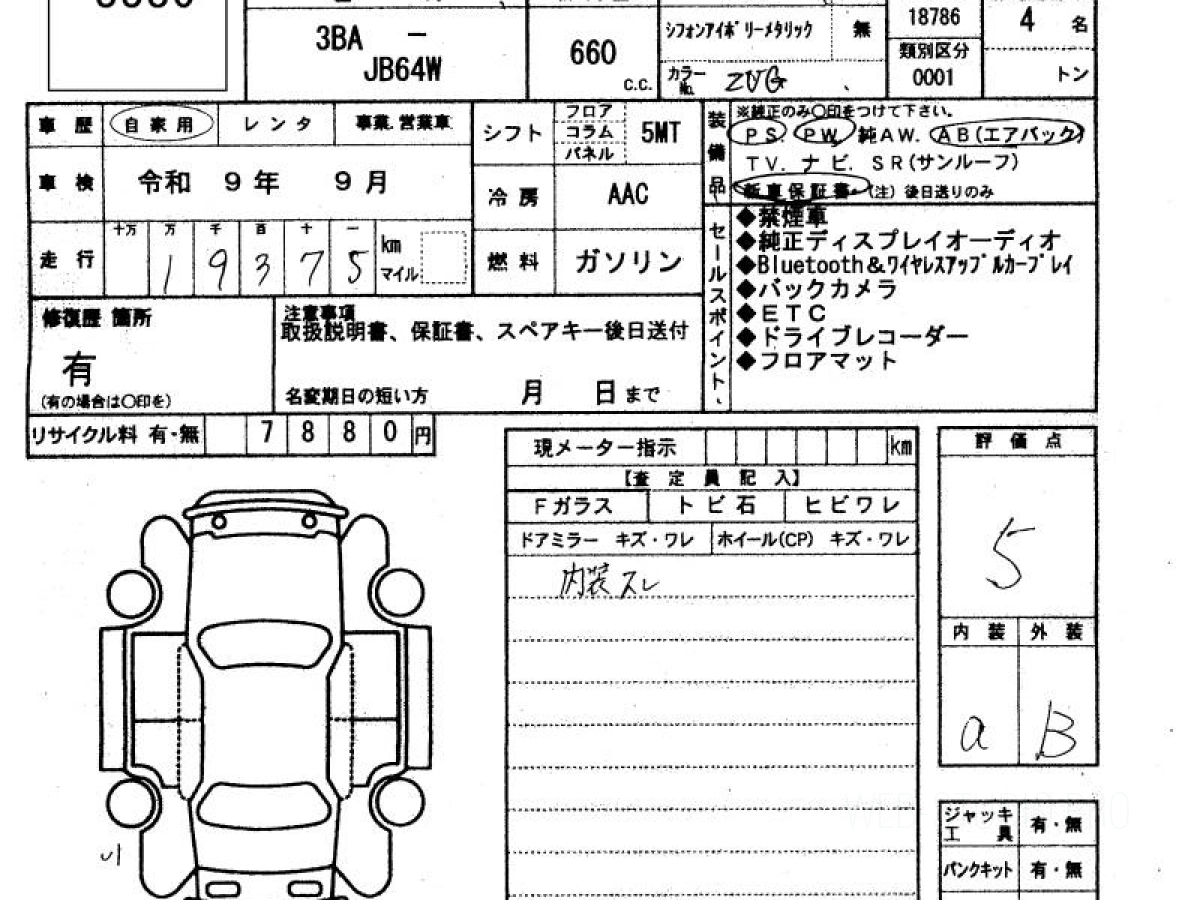 3BA -
JB64W
660
c.c.
シフォンアイボリーメタリック 無
カラー No. ZVG
18786
類別区分
0001
4 名
トン
車歴 自家用 レンタ 事業.営業車
シフト フロア コラム パネル 5MT
車検 令和 9年 9月
冷房 AAC
走行 十万 万 千 百 十 一
1 9 3 7 5 km マイル
燃料 ガソリン
装備品 ※純正のみ〇印をつけて下さい。
PS. PW. 純AW. AB(エアバック)
TV. ナビ. SR(サンルーフ)
新車保証書・(注)後日送りのみ
セールスポイント、
◆禁煙車
◆純正ディスプレイオーディオ
◆Bluetooth&ワイヤレスアップルカープレイ
◆バックカメラ
◆ETC
◆ドライブレコーダー
◆フロアマット
修復歴 箇所
有
(有の場合は〇印を)
注意事項
取扱説明書、保証書、スペアキー後日送付
名変期日の短い方 月 日 まで
リサイクル料 有・無 7 8 8 0 円
現メーター指示 km
【査定員記入】
Fガラス トビ石 ヒビワレ
ドアミラー キズ・ワレ ホイール(CP) キズ・ワレ
内装スレ
評価点
5
内装 外装
a B
ジャッキ 工具 有・無
パンクキット 有・無